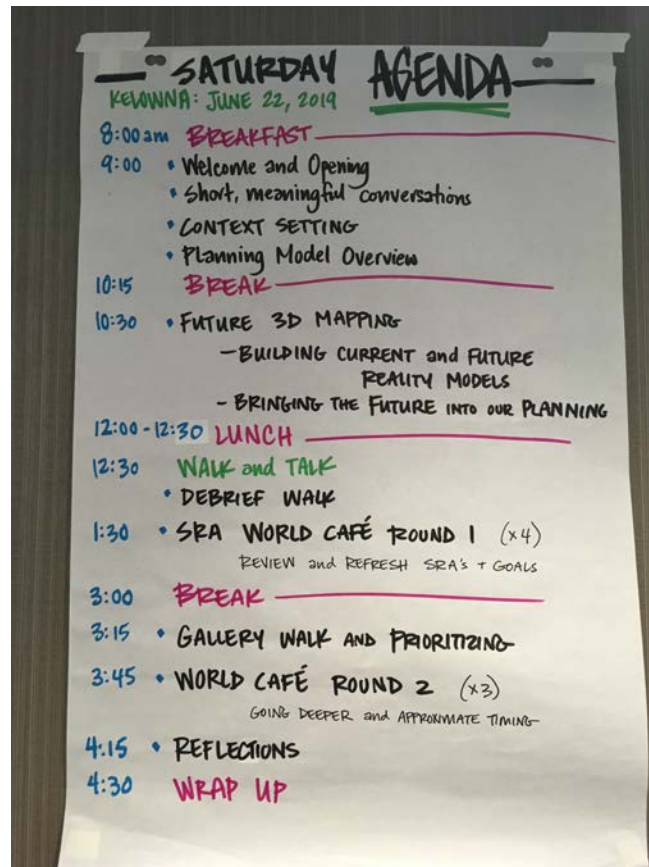 SATURDAY AGENDA
KELOWNA: JUNE 22, 2019
8:00am BREAKFAST
9:00 • Welcome and Opening
• Short, meaningful conversations
• CONTEXT SETTING
• Planning Model Overview
10:15 BREAK
10:30 • FUTURE 3D MAPPING
- BUILDING CURRENT and FUTURE
REALITY MODELS
- BRINGING THE FUTURE INTO OUR PLANNING
12:00-12:30 LUNCH
12:30 WALK and TALK
• DEBRIEF WALK
1:30 • SRA WORLD CAFÉ ROUND 1 (x4)
REVIEW and REFRESH SRA's + GOALS
3:00 BREAK
3:15 • GALLERY WALK AND PRIORITIZING
3:45 • WORLD CAFÉ ROUND 2 (x3)
GOING DEEPER and APPROXIMATE TIMING
4:15 • REFLECTIONS
4:30 WRAP UP